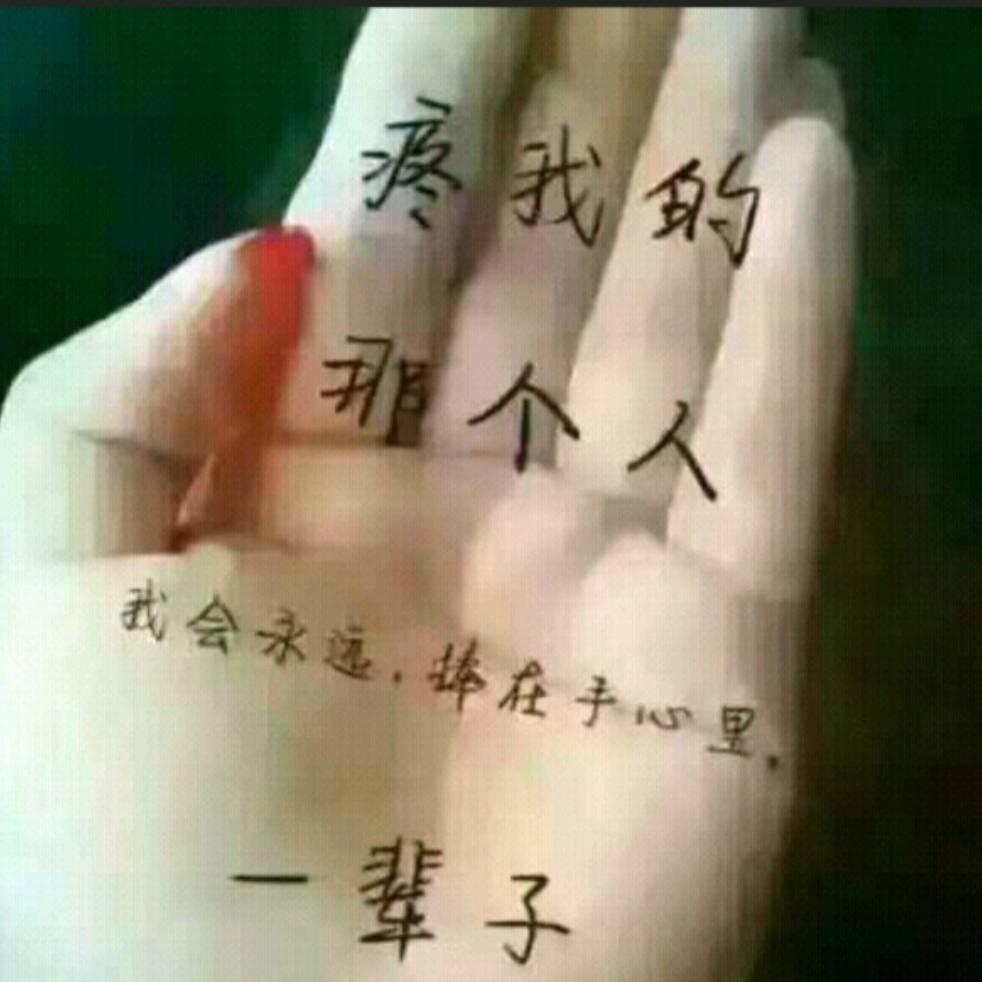 疼我的
那个人
我会永远.捧在手心里.
一辈子